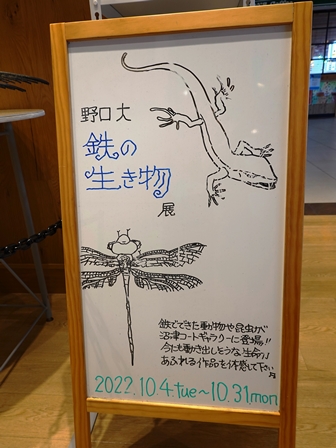 野口大
鉄の
生き物
展
鉄でできた動物や昆虫が
沼津コートギャラリーに登場!!
今にも動き出しそうな生命力
あふれる作品を体感して下さい
2022.10.4.tue~10.31.mon